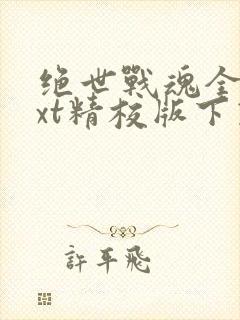 绝世戰魂全
xt精校版下
許平飛